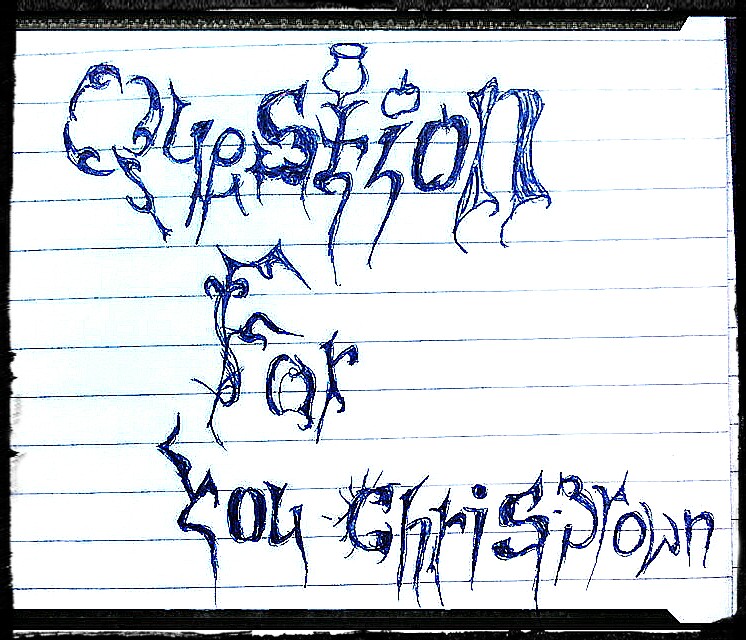 Question
For
You Chris Brown